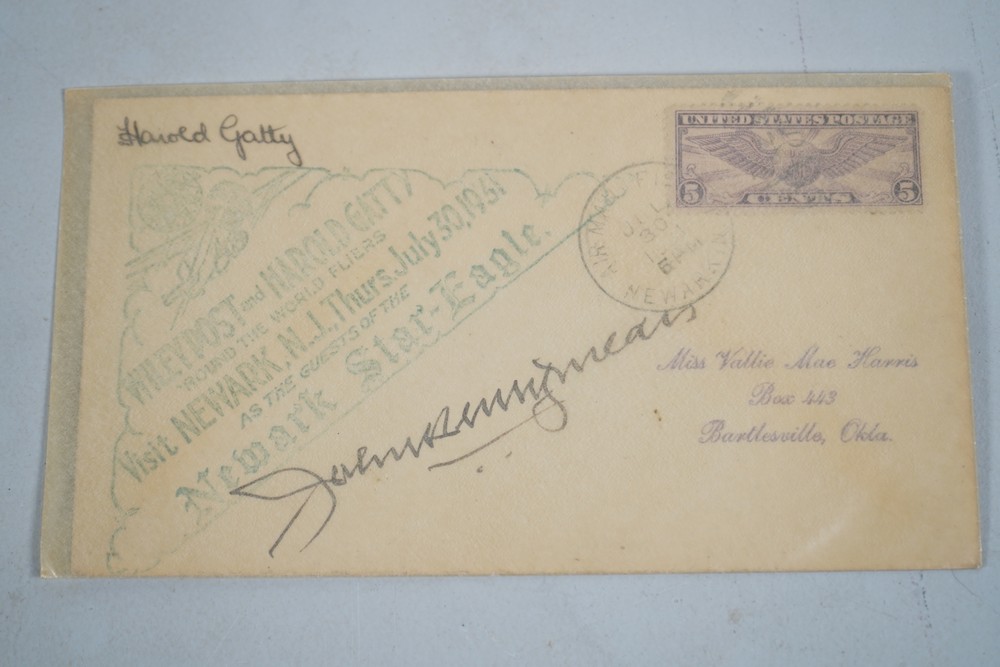 Harold Gatty
UNITED STATES POSTAGE
5 CENTS 5
AIR MAIL FIELD
JUL
30
6 PM
NEWARK N J
WILEY POST and HAROLD GATTY
'ROUND THE WORLD FLIERS
Visit NEWARK, N.J., Thurs. July 30, 1931
AS THE GUESTS OF THE
Newark Star-Eagle.
John
Miss Vallie Mae Harris
Box 443
Bartlesville, Okla.